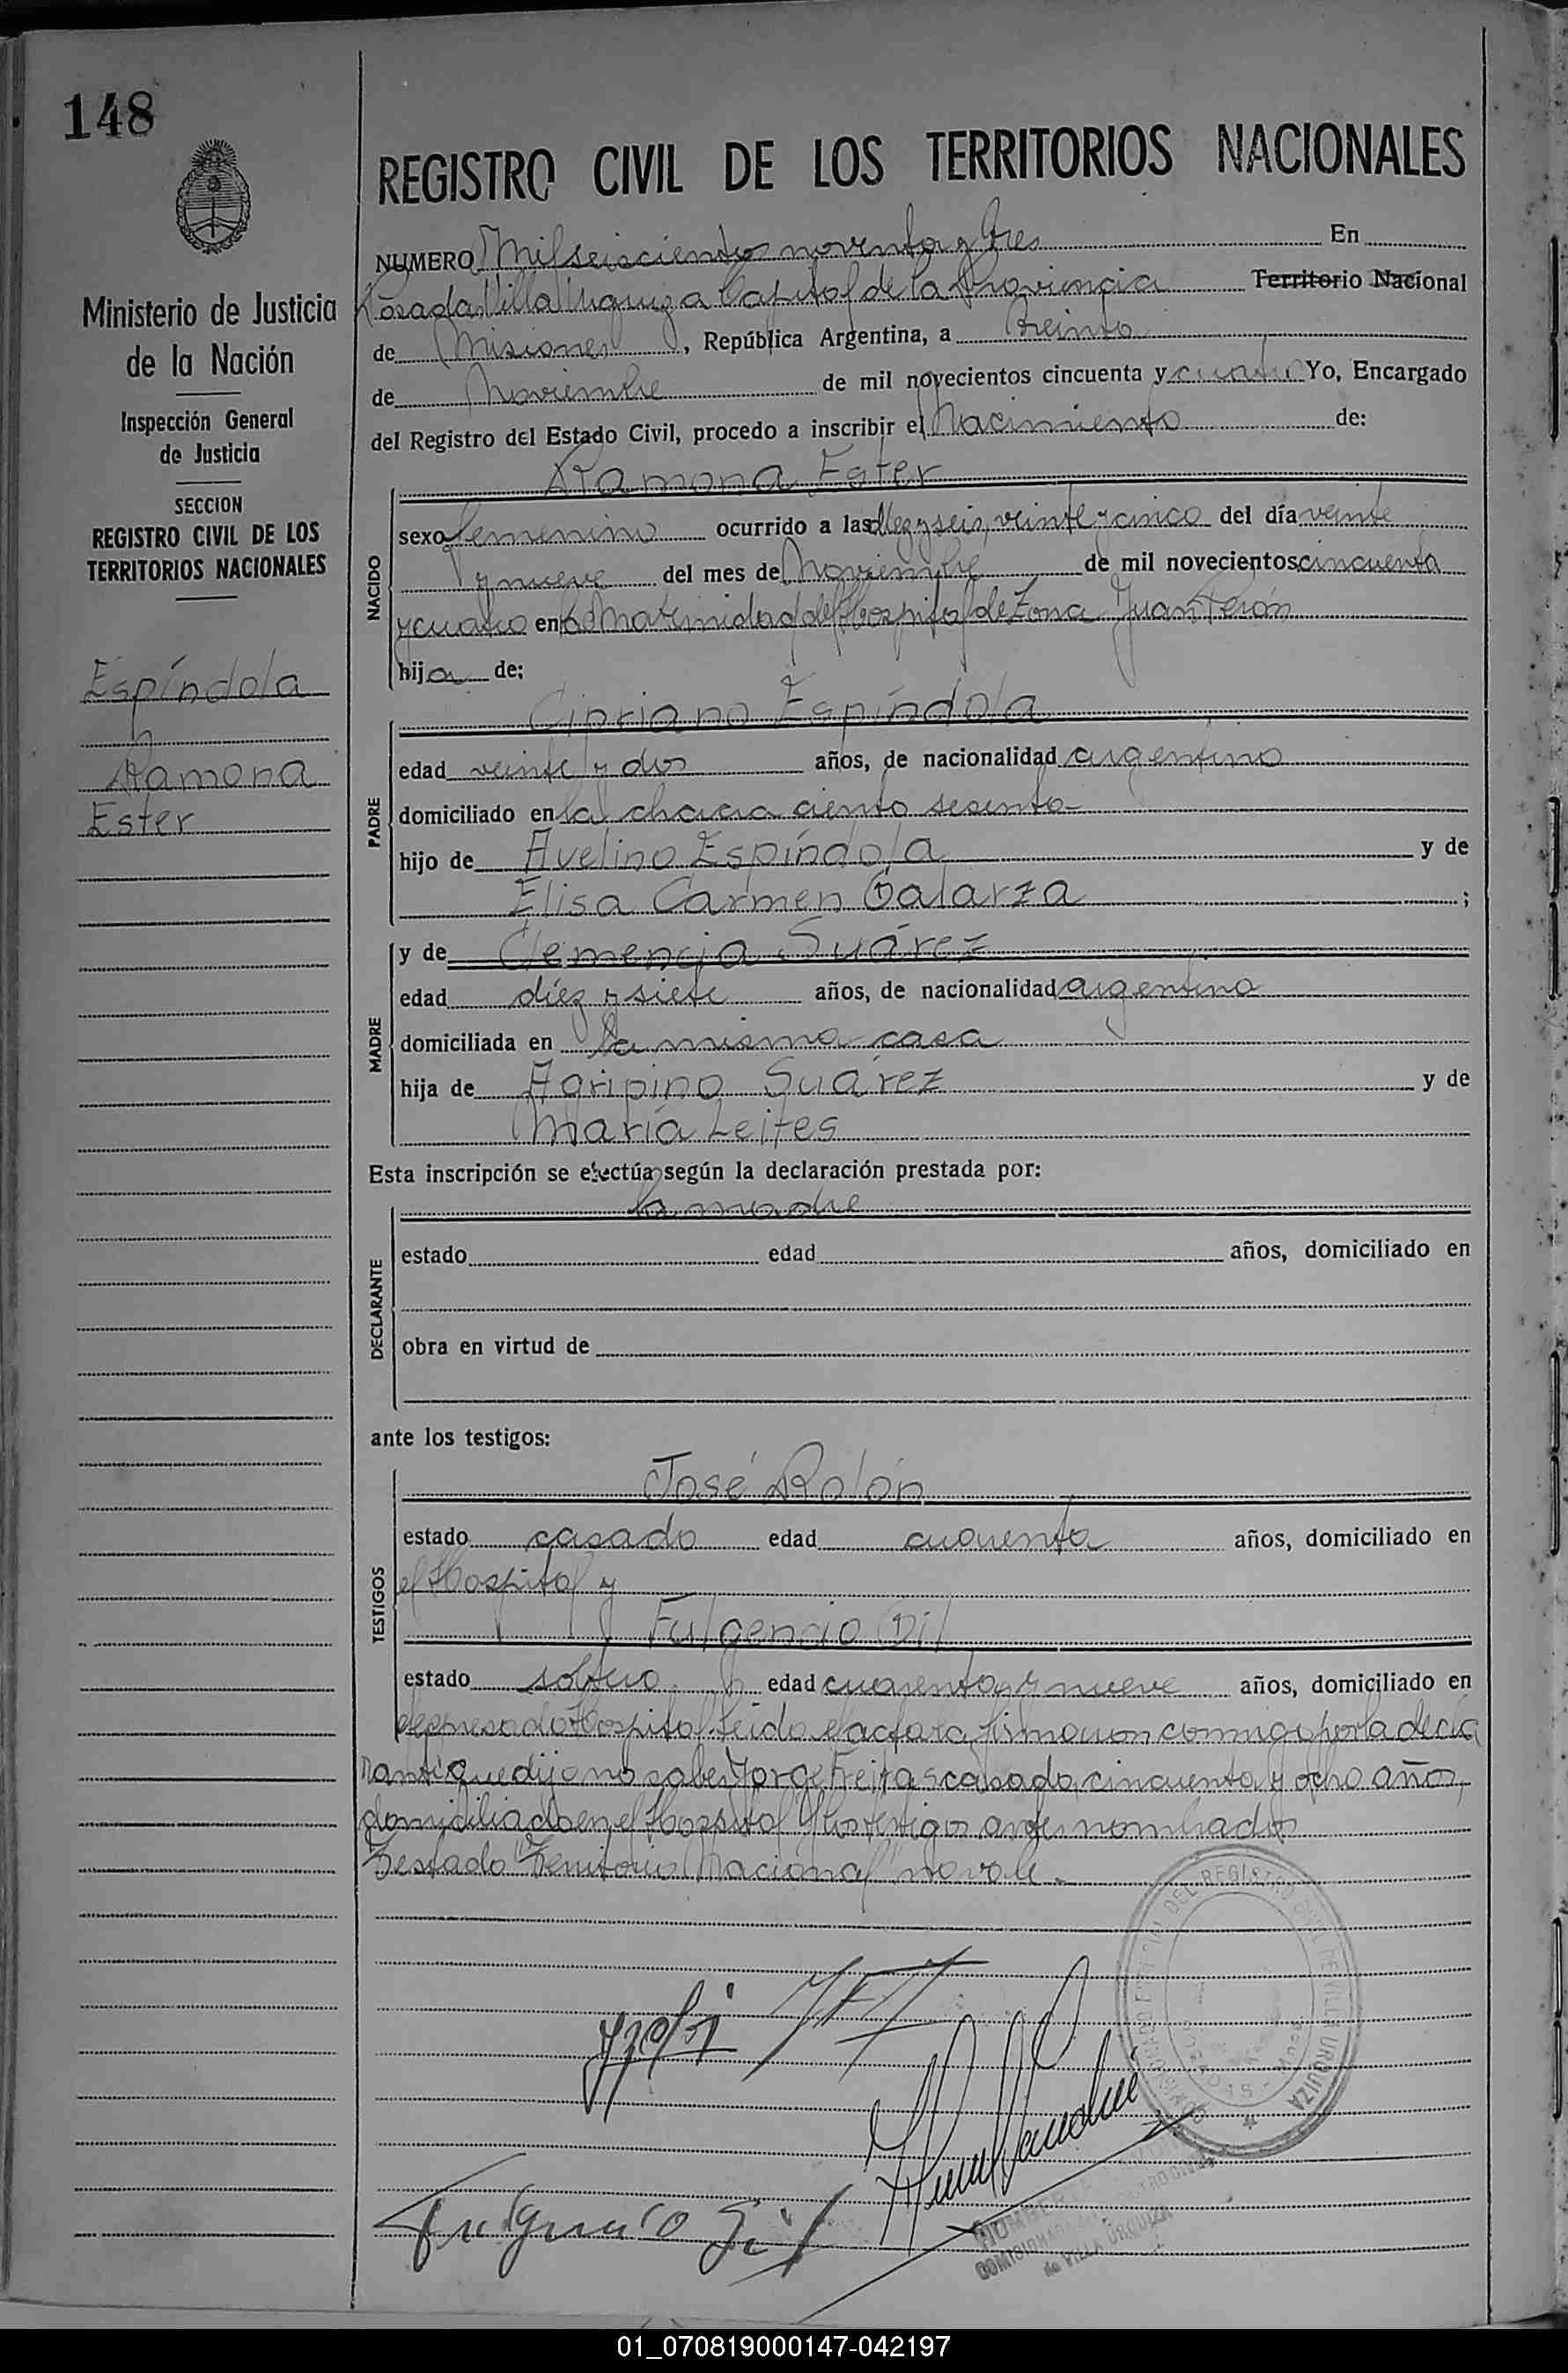 148
Ministerio de Justicia
de la Nación
Inspección General
de Justicia
SECCION
REGISTRO CIVIL DE LOS
TERRITORIOS NACIONALES
Espíndola
Ramona
Ester
REGISTRO CIVIL DE LOS TERRITORIOS NACIONALES
NUMERO Mil seiscientos noventa y tres En
Posadas Villa Urquiza Capital de la Provincia Territorio Nacional
de Misiones, República Argentina, a treinta
de Noviembre de mil novecientos cincuenta y cuatro Yo, Encargado
del Registro del Estado Civil, procedo a inscribir el Nacimiento de:
NACIDO
Ramona Ester
sexo femenino ocurrido a las diez y seis, veinte y cinco del día veinte
y nueve del mes de Noviembre de mil novecientos cincuenta
y cuatro en la Maternidad del Hospital de Zona Juan Perón
hija de:
PADRE
Cipriano Espíndola
edad veinte y dos años, de nacionalidad argentino
domiciliado en la chacra ciento sesenta
hijo de Avelino Espíndola y de
Elisa Carmen Galarza ;
MADRE
y de Clemencia Suárez
edad diez y siete años, de nacionalidad argentina
domiciliada en la misma casa
hija de Agripino Suárez y de
María Leites
Esta inscripción se efectúa según la declaración prestada por:
DECLARANTE
la madre
estado edad años, domiciliado en
obra en virtud de
ante los testigos:
TESTIGOS
José Rolón
estado casado edad cuarenta años, domiciliado en
el Hospital y
Fulgencio Gil
estado soltero edad cuarenta y nueve años, domiciliado en
expresado Hospital. Leída el acta la firmaron conmigo por la decla
rante que dijo no saber Jorge Freitas casado, cincuenta y ocho años,
domiciliado en el Hospital y los testigos antes nombrados
Testado Territorio Nacional no vale.
DEL REGISTRO CIVIL DE VILLA URQUIZA
Fulgencio Gil
de VILLA URQUIZA
01_070819000147-042197